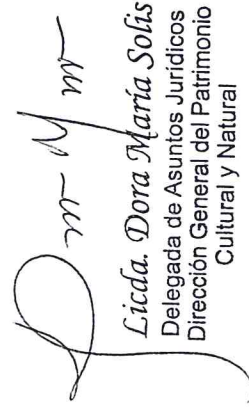 Licda. Dora María Solis
Delegada de Asuntos Jurídicos
Dirección General del Patrimonio
Cultural y Natural